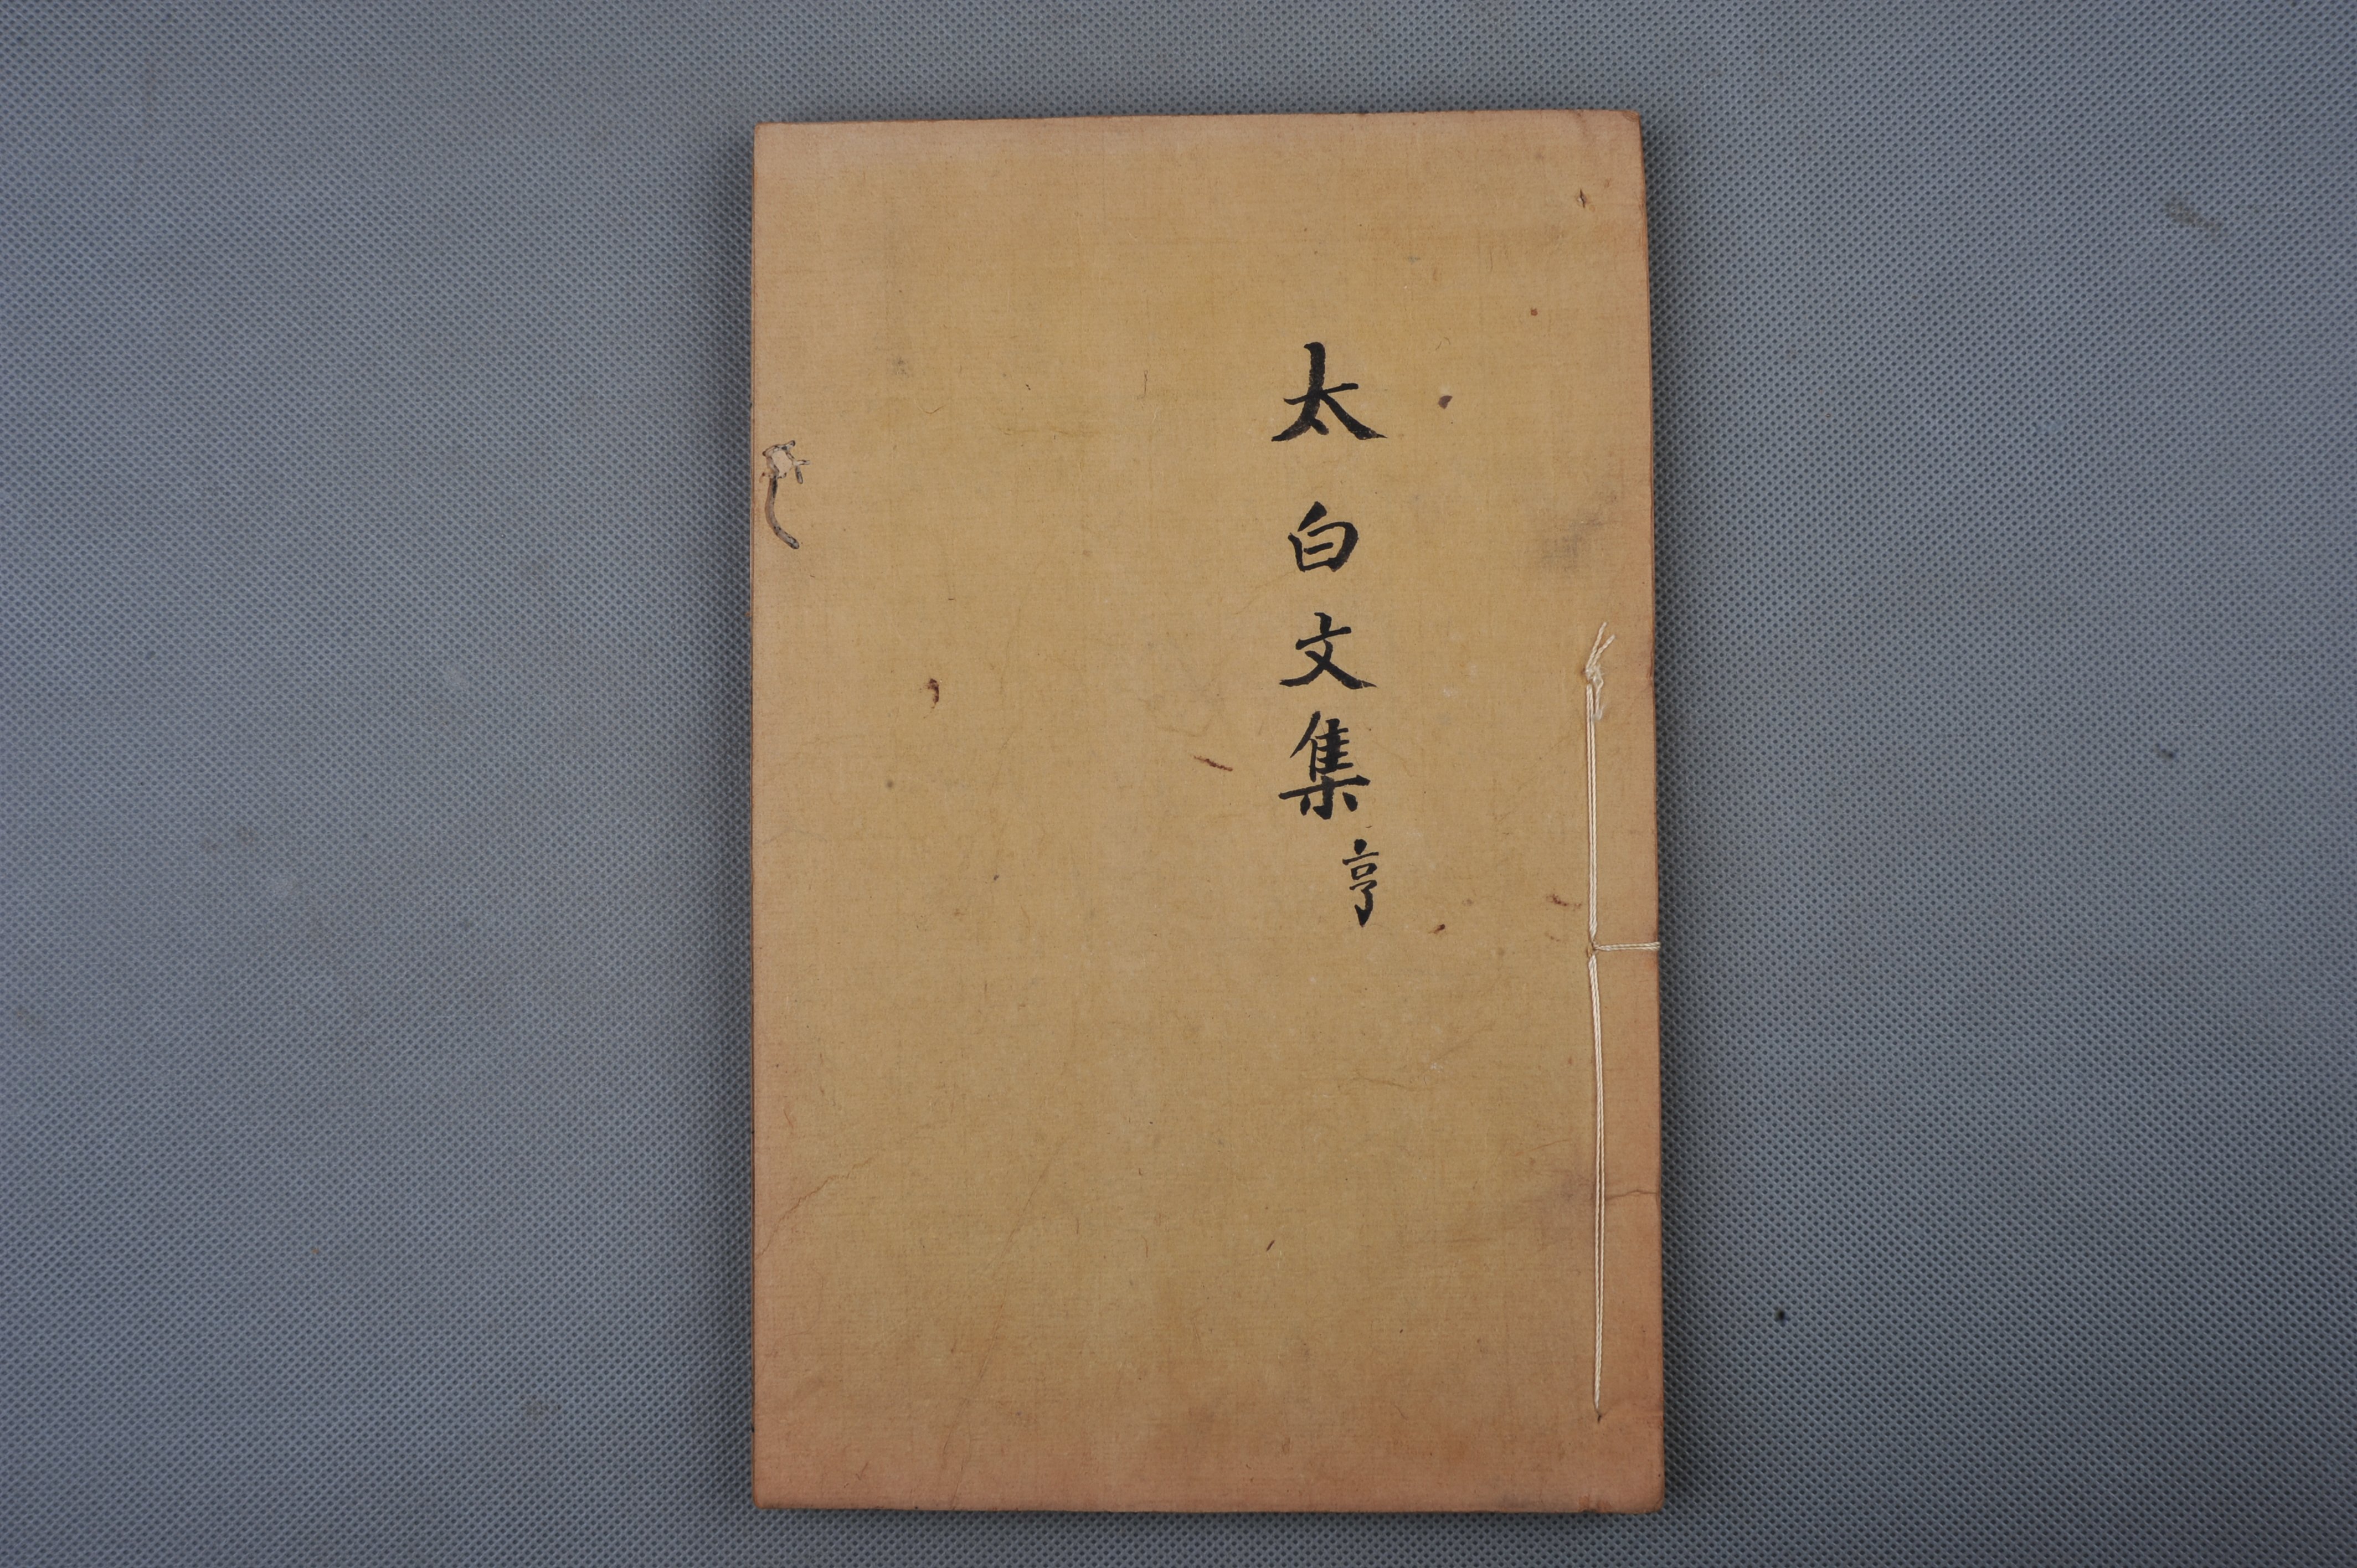 太白文集
亨